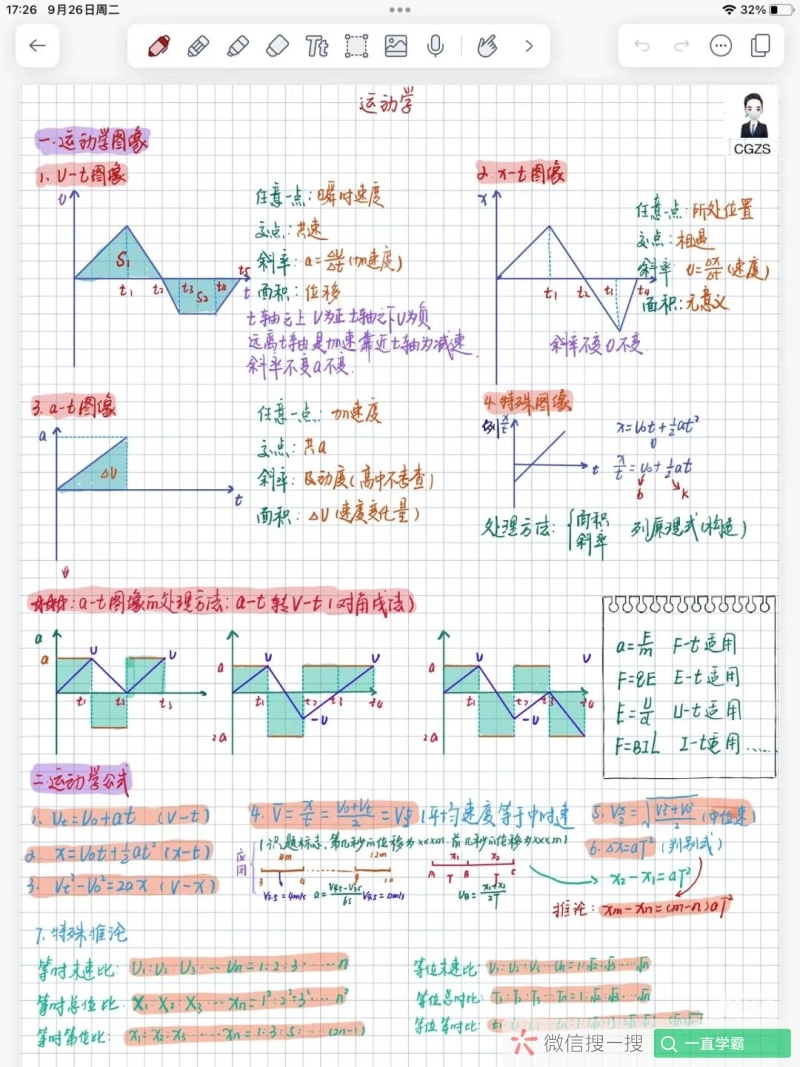 17:26 9月26日周二
32%
Tt
运动学
CGZS
一.运动学图像
1. V-t图像
2. x-t图像
υ
任意一点: 瞬时速度
交点: 共速
斜率: a=Δυ/Δt(加速度)
面积: 位移
t轴之上 V为正 t轴之下 V为负
远离t轴是加速 靠近t轴为减速.
斜率不变a不变.
S₁
S₂
t₁ t₂ t₃ t₄ t₅
t
x
任意一点: 所处位置
交点: 相遇
斜率: υ=Δx/Δt(速度)
面积: 无意义
t₁ t₂ t₁ t₄
斜率不变 υ不变.
3. a-t图像
a
ΔV
t
任意一点: 加速度
交点: 共a
斜率: 及动度(高中不考查)
面积: ΔV(速度变化量)
4.特殊图像
例 x/t
t
x=υ₀t+½at²
x/t=υ₀+½at
b k
处理方法: {面积 斜率 列原理式(构造)
☆☆☆: a-t图像的处理方法: a-t转V-t(对角线法)
a
a υ υ
t₁ t₂ t₃
a υ
t₁ t₂ t₃ t₄
-υ
2a
a υ
t₁ t₂ t₃ t₄
-υ
2a
a=F/m F-t适用
F=qE E-t适用
E=U/d U-t适用
F=BIL I-t适用……
二.运动学公式
1. Vt=V₀+at (V-t)
2. x=V₀t+½at² (x-t)
3. Vt²-V₀²=2ax (V-x)
4. V̄=x/t=(V₀+Vt)/2=Vt/2 (平均速度等于中时速
(识题标志, 第几秒的位移为xxxm. 前几秒的位移为xxxm)
应用
4m 12m
x₁ x₂
A T B T C
5. Vx/2=√((Vt²+V₀²)/2) (中位速)
6. Δx=aT² (判别式)
x₂-x₁=aT²
推论: xm-xn=(m-n)aT²
7. 特殊推论
等时末速比: υ₁:υ₂:υ₃…υn=1:2:3:……n
等时总位比: X₁:X₂:X₃…xn=1²:2²:3²…n²
等时等位比: x₁:x₂:x₃……xn=1:3:5:……(2n-1)
等位末速比: υ₁:υ₂:υ₃…υn=1:√2:√3…√n
等位总时比: T₁:T₂:T₃…Tn=1:√2:√3…√n
等位等时比:
微信搜一搜
一直学霸